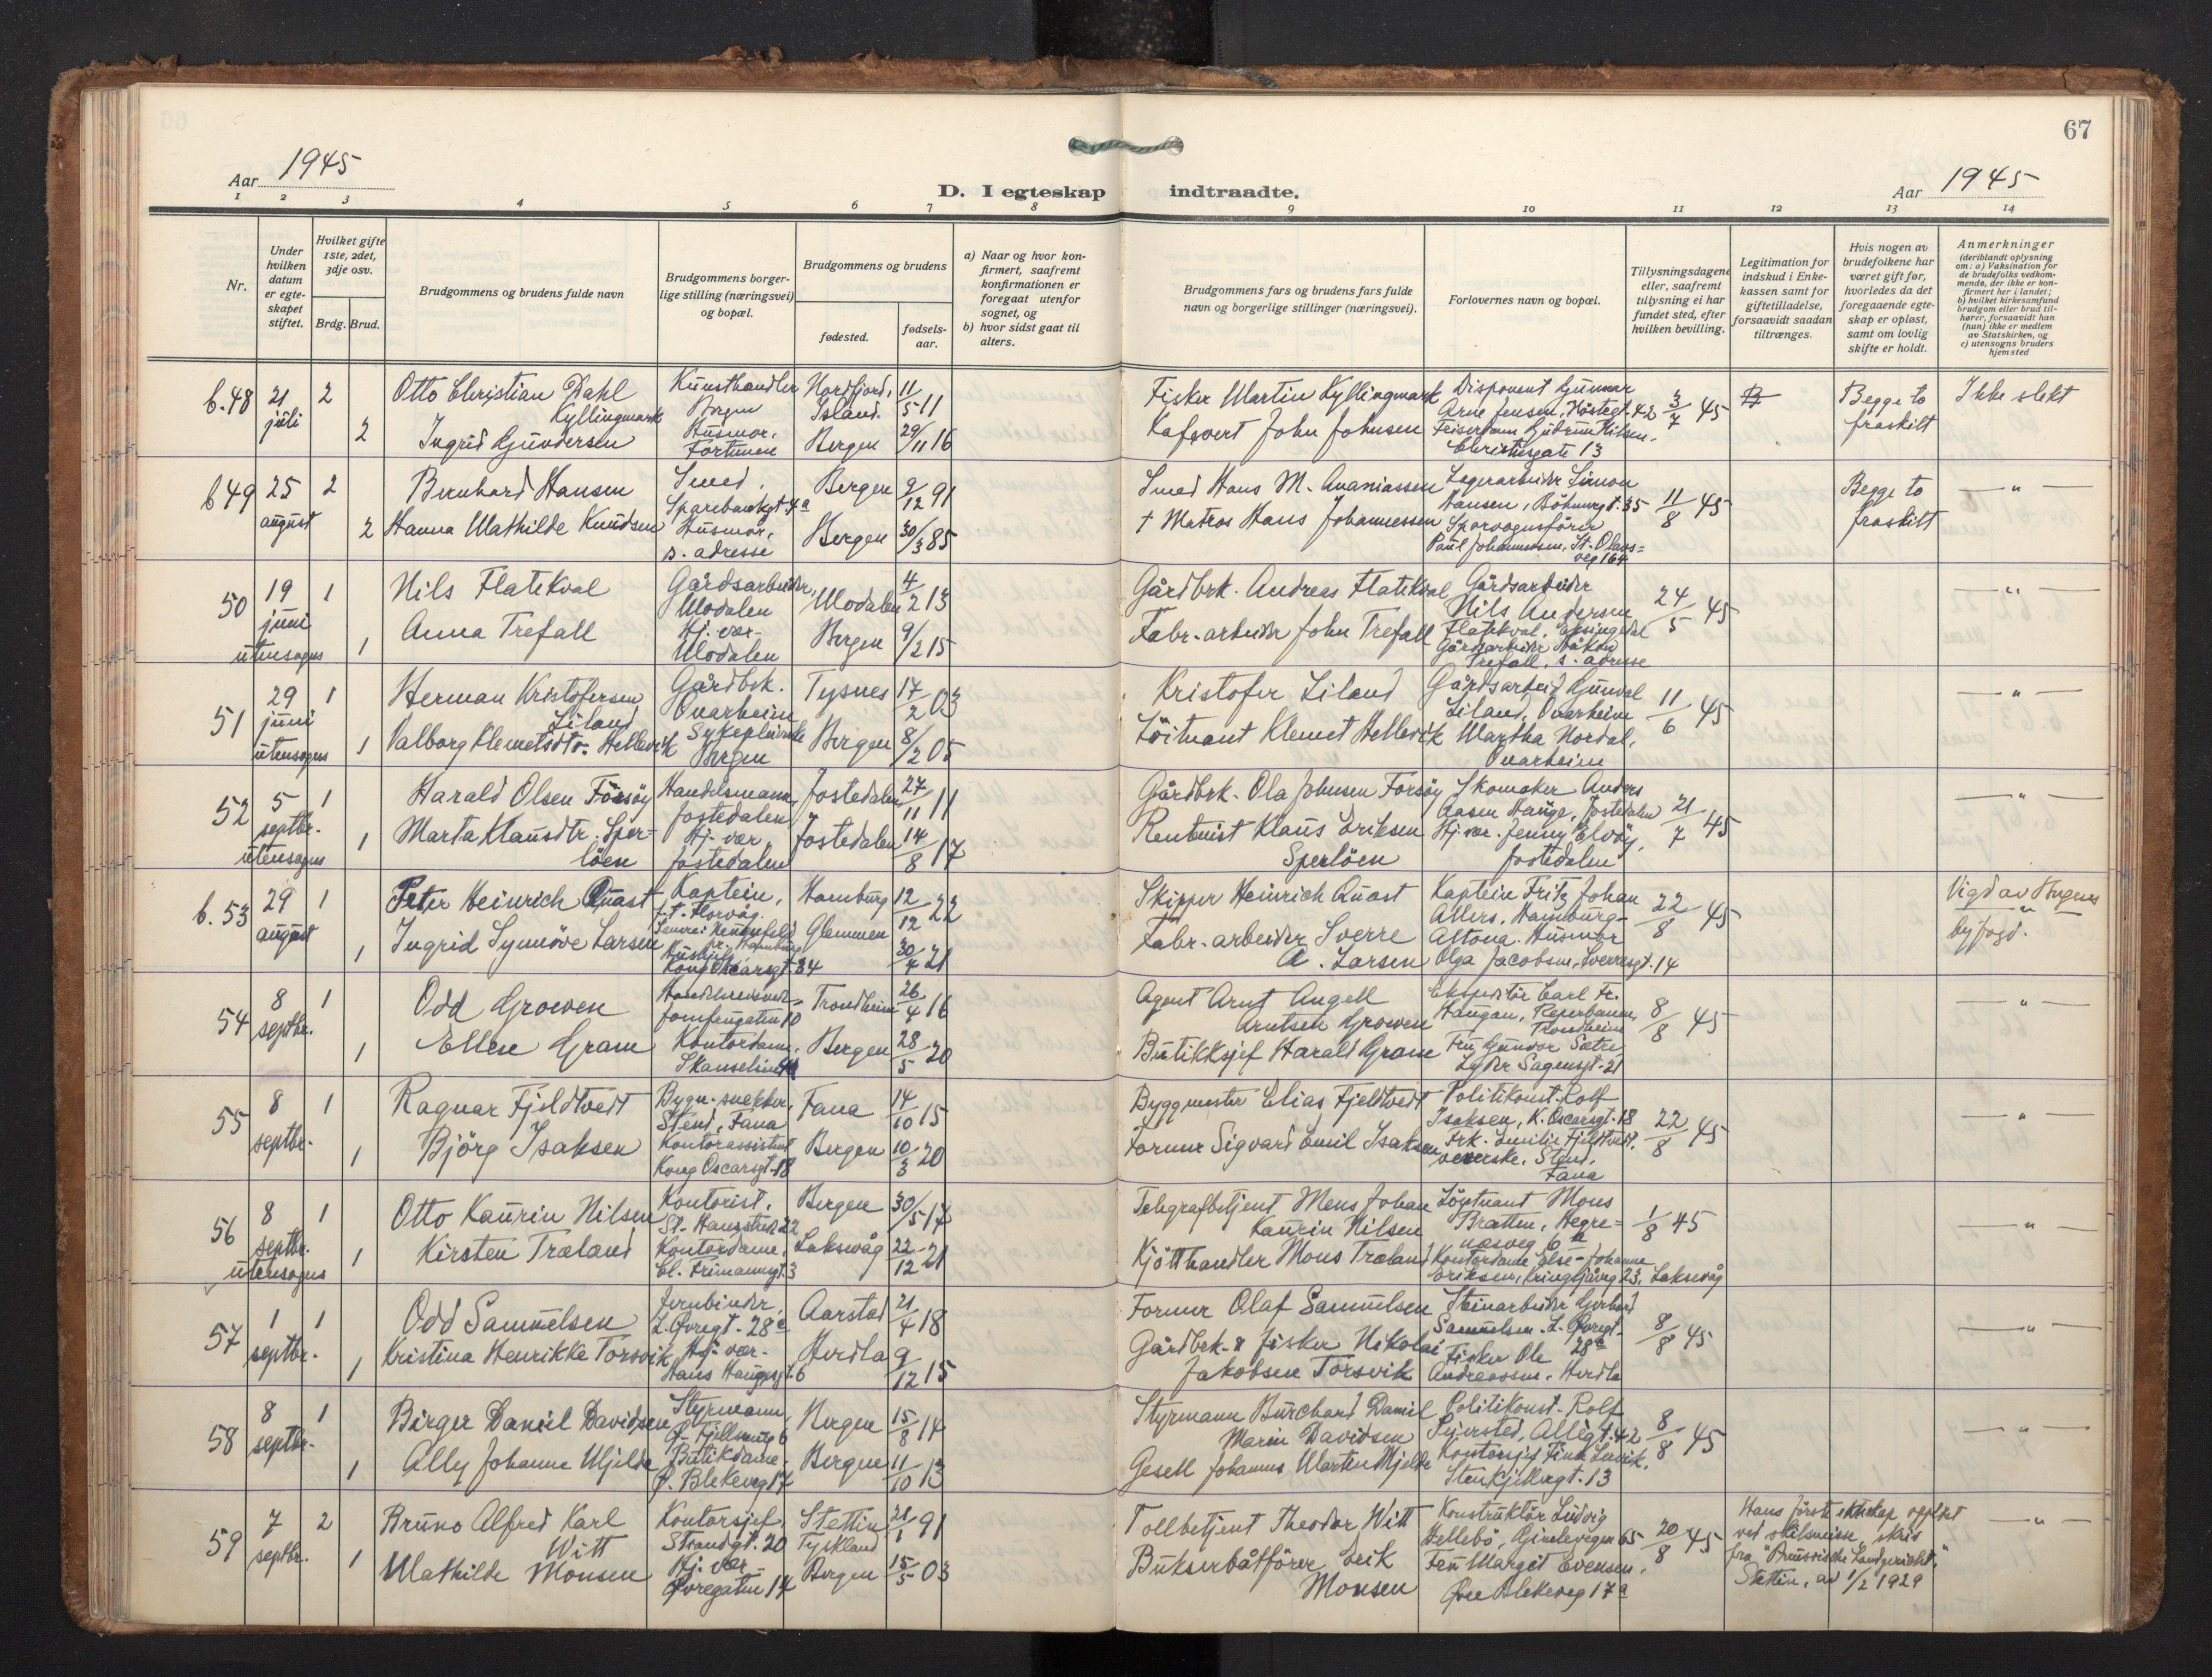 67
Aar 1945
D. I egteskap indtraadte.
Aar 1945
1 2 3 4 5 6 7 8 9 10 11 12 13 14
Nr.
Under hvilken datum er egteskapet stiftet.
Hvilket gifte 1ste, 2det, 3dje osv.
Brdg. Brud.
Brudgommens og brudens fulde navn
Brudgommens borgerlige stilling (næringsvei) og bopæl.
Brudgommens og brudens
fødested.
fødselsaar.
a) Naar og hvor konfirmert, saafremt konfirmationen er foregaat utenfor sognet, og
b) hvor sidst gaat til alters.
Brudgommens fars og brudens fars fulde navn og borgerlige stillinger (næringsvei).
Forlovernes navn og bopæl.
Tillysningsdagene eller, saafremt tillysning ei har fundet sted, efter hvilken bevilling.
Legitimation for indskud i Enkekassen samt for giftetilladelse, forsaavidt saadan tiltrænges.
Hvis nogen av brudefolkene har været gift før, hvorledes da det foregaaende egteskap er opløst, samt om lovlig skifte er holdt.
Anmerkninger (deriblandt oplysning om: a) Vaksination for de brudefolks vedkommende, der ikke er konfirmert her i landet; b) hvilket kirkesamfund brudgom eller brud tilhører, forsaavidt han (hun) ikke er medlem av Statskirken, og c) utensogns bruders hjemsted
b. 48 21 juli 2 Otto Christian Dahl Kyllingmark Kunsthandler Bergen Nordfjord, Island. 11/5 11 Fisker Martin Kyllingmark Disponent Gunnar Arne Jensen, Høstegt. 42 3/7 45 Begge to fraskilt Ikke slekt
2 Ingrid Gundersen Husmor, Fortunen Bergen 29/11 16 John Johnsen Gudrun Nilsen, Christiesgate 13
b 49 25 august 2 Bernhard Hansen Smed, Sparebankgt. 4a Bergen 9/12 91 Smed Hans M. Ananiassen Lagerarbeider Simon Hansen, 35 11/8 45 Begge to fraskilt — " —
2 Hanna Mathilde Knudsen Husmor, s. adresse Bergen 30/3 85 † Matros Hans Johannessen Sporvognsfører Paul Johannessen, St. Olavsveg 16
50 19 juni utensogns 1 Nils Flatekval Gårdsarbeider, Modalen Modalen 4/2 13 Gårdbrk. Andreas Flatekval Gårdsarbeider Nils Andersen Flatekval, Eksingedal 24/5 45 — " —
1 Anna Trefall Hj. vær. Modalen Bergen 9/2 15 Fabr. arbeider John Trefall Gårdsarbeider Håkon Trefall, s. adresse
51 29 juni utensogns 1 Herman Kristofersen Liland Gårdbrk. Onarheim Tysnes 17/2 03 Kristofer Liland Gårdsarbeid. Gunvald Liland, Onarheim 11/6 45 — " —
1 Valborg Klemetsdtr. Hellevik Sykepleierske Bergen Bergen 8/2 05 Löitnant Klemet Hellevik Martha Nordal, Onarheim
52 5 septbr. utensogns 1 Harald Olsen Førsöy Handelsmann, Jostedalen Jostedalen 27/11 11 Gårdbrk. Ola Johnsen Forsöy Skomaker Anders Aasen Hauge, Jostedalen 21/7 45 — " —
1 Marta Klausdtr. Sperlöen Hj. vær Jostedalen Jostedalen 14/8 17 Rentenist Klaus Eriksen Sperlöen Hj. vær. Jenny Elvöy, Jostedalen
b. 53 29 august 1 Peter Heinrich Quast Kaptein, f. t. Florvåg. Hamburg 12/12 22 Skipper Heinrich Quast Kaptein Fritz Johan Allers, Hamburg-Altona. 22/8 45 Vigd av Bergens byfogd. — " —
1 Ingrid Synnöve Larsen Kong Oscarsgt. 84 Glemmen 30/4 21 Fabr. arbeider Sverre A. Larsen Husmor Olga Jacobsen, Sverresgt. 14
54 8 septbr. 1 Odd Growen Jomfrugaten 10 Trondheim 26/4 16 Agent Arnt Angell Arntsen Growen Ekspeditör Carl Fr. Haugan, Reperbanen, Trondheim 8/8 45 — " —
1 Ellen Gram Kontordame, Bergen 28/5 20 Butikksjef Harald Gram Fru Gunvor Sætre, Lyder Sagensgt. 21
55 8 septbr. 1 Ragnar Fjeldtvedt Bygn. snekker, Stend, Fana Fana 14/10 15 Byggmester Elias Fjeldtvedt Politikonst. Rolf Isaksen, K. Oscarsgt. 18 22/8 45 — " —
1 Björg Isaksen Kontorassistent Kong Oscarsgt. 18 Bergen 10/3 20 Former Sigvard Emil Isaksen Frk. Emilie Fjeldtvedt, veverske, Stend, Fana
56 8 septbr. utensogns 1 Otto Kaurin Nilsen Kontorist, St. Hansstredet 22 Bergen 30/5 17 Telegrafbetjent Mens Johan Kaurin Nilsen Löytnant Mons Bratten, Hegrenesveg 6 1/8 45 — " —
1 Kirsten Træland Kontordame, Cl. Frimannsgt. 3 Laksevåg 22/12 21 Kjötthandler Mons Træland Kontordame Else-Johanne Eriksen, Kringsjåveg 23, Laksevåg
57 1 septbr. 1 Odd Samuelsen Jernbinder, L. Øvregt. 28c Aarstad 21/4 18 Former Olaf Samuelsen Steinarbeider Gerhard Samuelsen, L. Øvregt. 28c 8/8 45 — " —
1 Kristina Henrikke Torsvik Hj. vær. Hans Haugesgt. 6 Herdla 9/12 15 Gårdbrk. & fisker Nikolai Jakobsen Torsvik Fisker Ole Andreassen, Herdla
58 8 septbr. 1 Birger Daniel Davidsen Styrmann, Bergen 15/8 14 Styrmann Burchard Daniel Marin Davidsen Politikonst. Rolf Sjursted, Allégt. 42 8/8 45 — " —
1 Ally Johanne Mjelde Butikdame, Ø. Blekeveg 17 Bergen 11/10 13 Gesell Johannes Martin Mjelde Kontorsjef Steinkjellergt. 13
59 7 septbr. 2 Bruno Alfred Karl Witt Kontorsjef, Strandgt. 20 Stettin, Tyskland 21/1 91 Tollbetjent Theodor Witt Konstruktör Ludvig Hellebö, Gimlevegen 65 20/8 45 Hans første ekteskap opplöst ved skilsmisse, skis fra "Preussische Landgericht," Stettin, av 1/2 1929 — " —
1 Mathilde Monsen Hj. vær Øvregaten 17 Bergen 15/5 03 Bukserbåtförer Erik Monsen Fru Margit Evensen, Øvre Blekeveg 17a